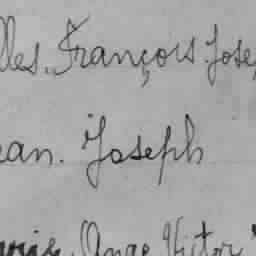 lles. François. Jose
ean. Joseph
Ange Victor